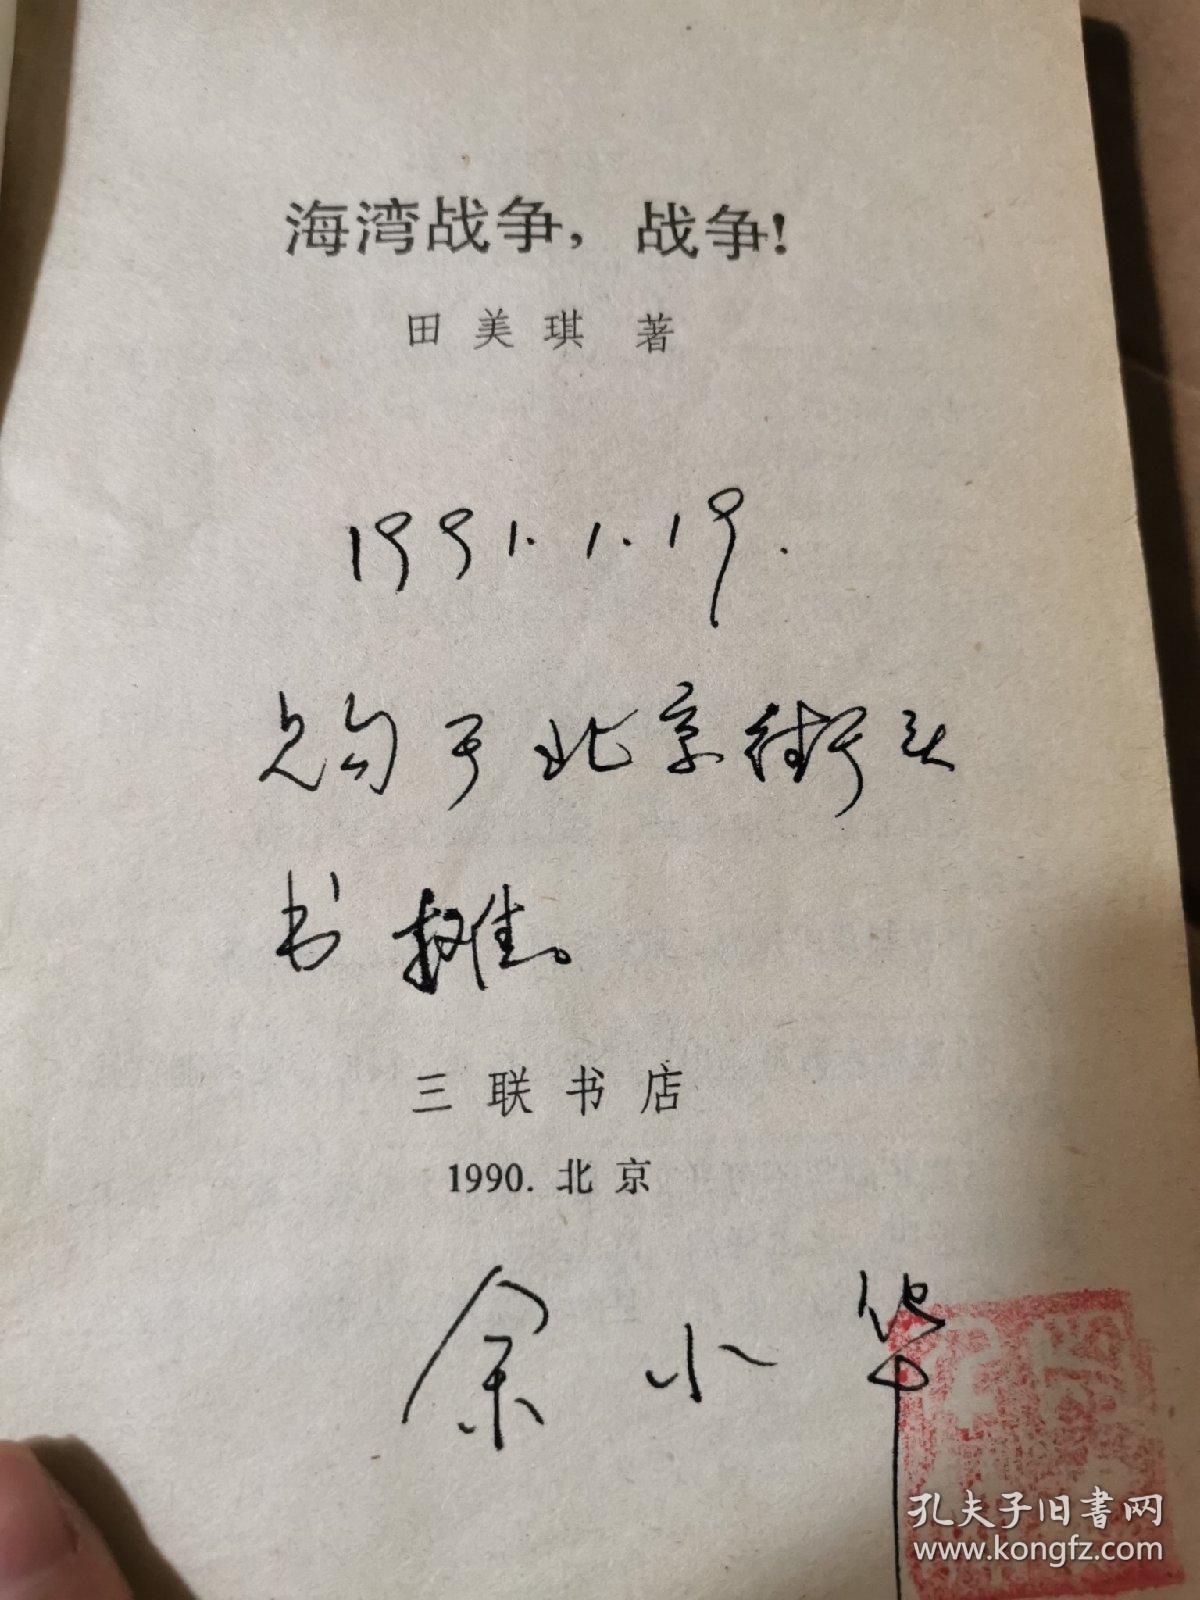 海湾战争，战争!
田美琪 著
1991.1.19.
购于北京街头
书摊。
三联书店
1990. 北京
余小华
孔夫子旧书网
www.kongfz.com